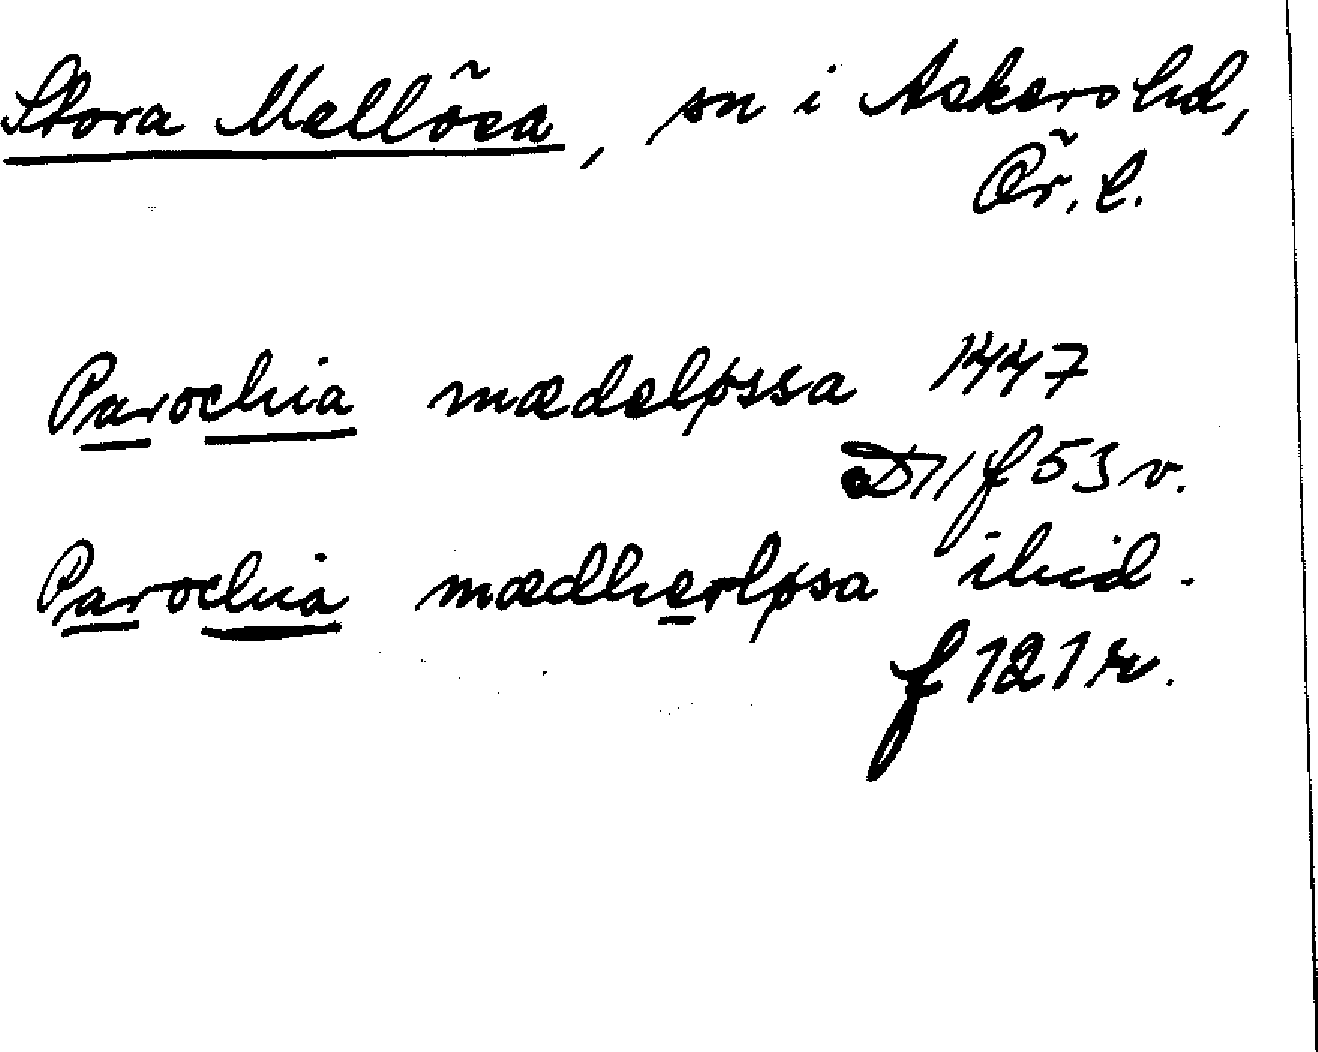 Stora Mellösa, sn i Askers hd,
Ör. l.
Parochia mædeløssa 1447
D 11 f 53 v.
Parochia mædherløsa ibid.
f 121 r.